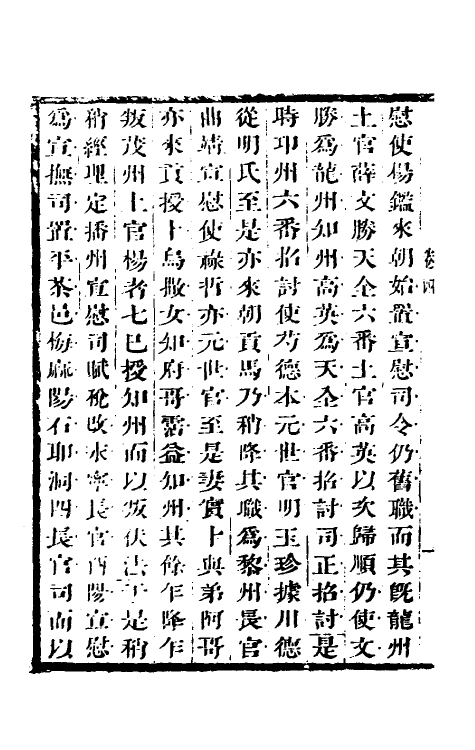 慰使楊鑑來朝始置宣慰司令仍舊職而其旣龍州
土官薛文勝天全六番土官高英以次歸順仍使文
勝爲龍州知州高英爲天全六番招討司正招討是
時邛州六番招討使芍德本元世官明玉珍據川德
從明氏至是亦來朝貢馬乃稍降其職爲黎州長官
曲靖宣慰使祿哲亦元世官至是妻實卜與弟阿哥
亦來貢授卜烏撒女知府哥霑益知州其餘乍降乍
叛茂州土官楊者七已授知州而以叛伏法于是稍
稍經理定播州宣慰司賦稅改永寧長官酉陽宣慰
爲宣撫司置平茶邑梅麻陽石耶洞四長官司而以
卷四
一